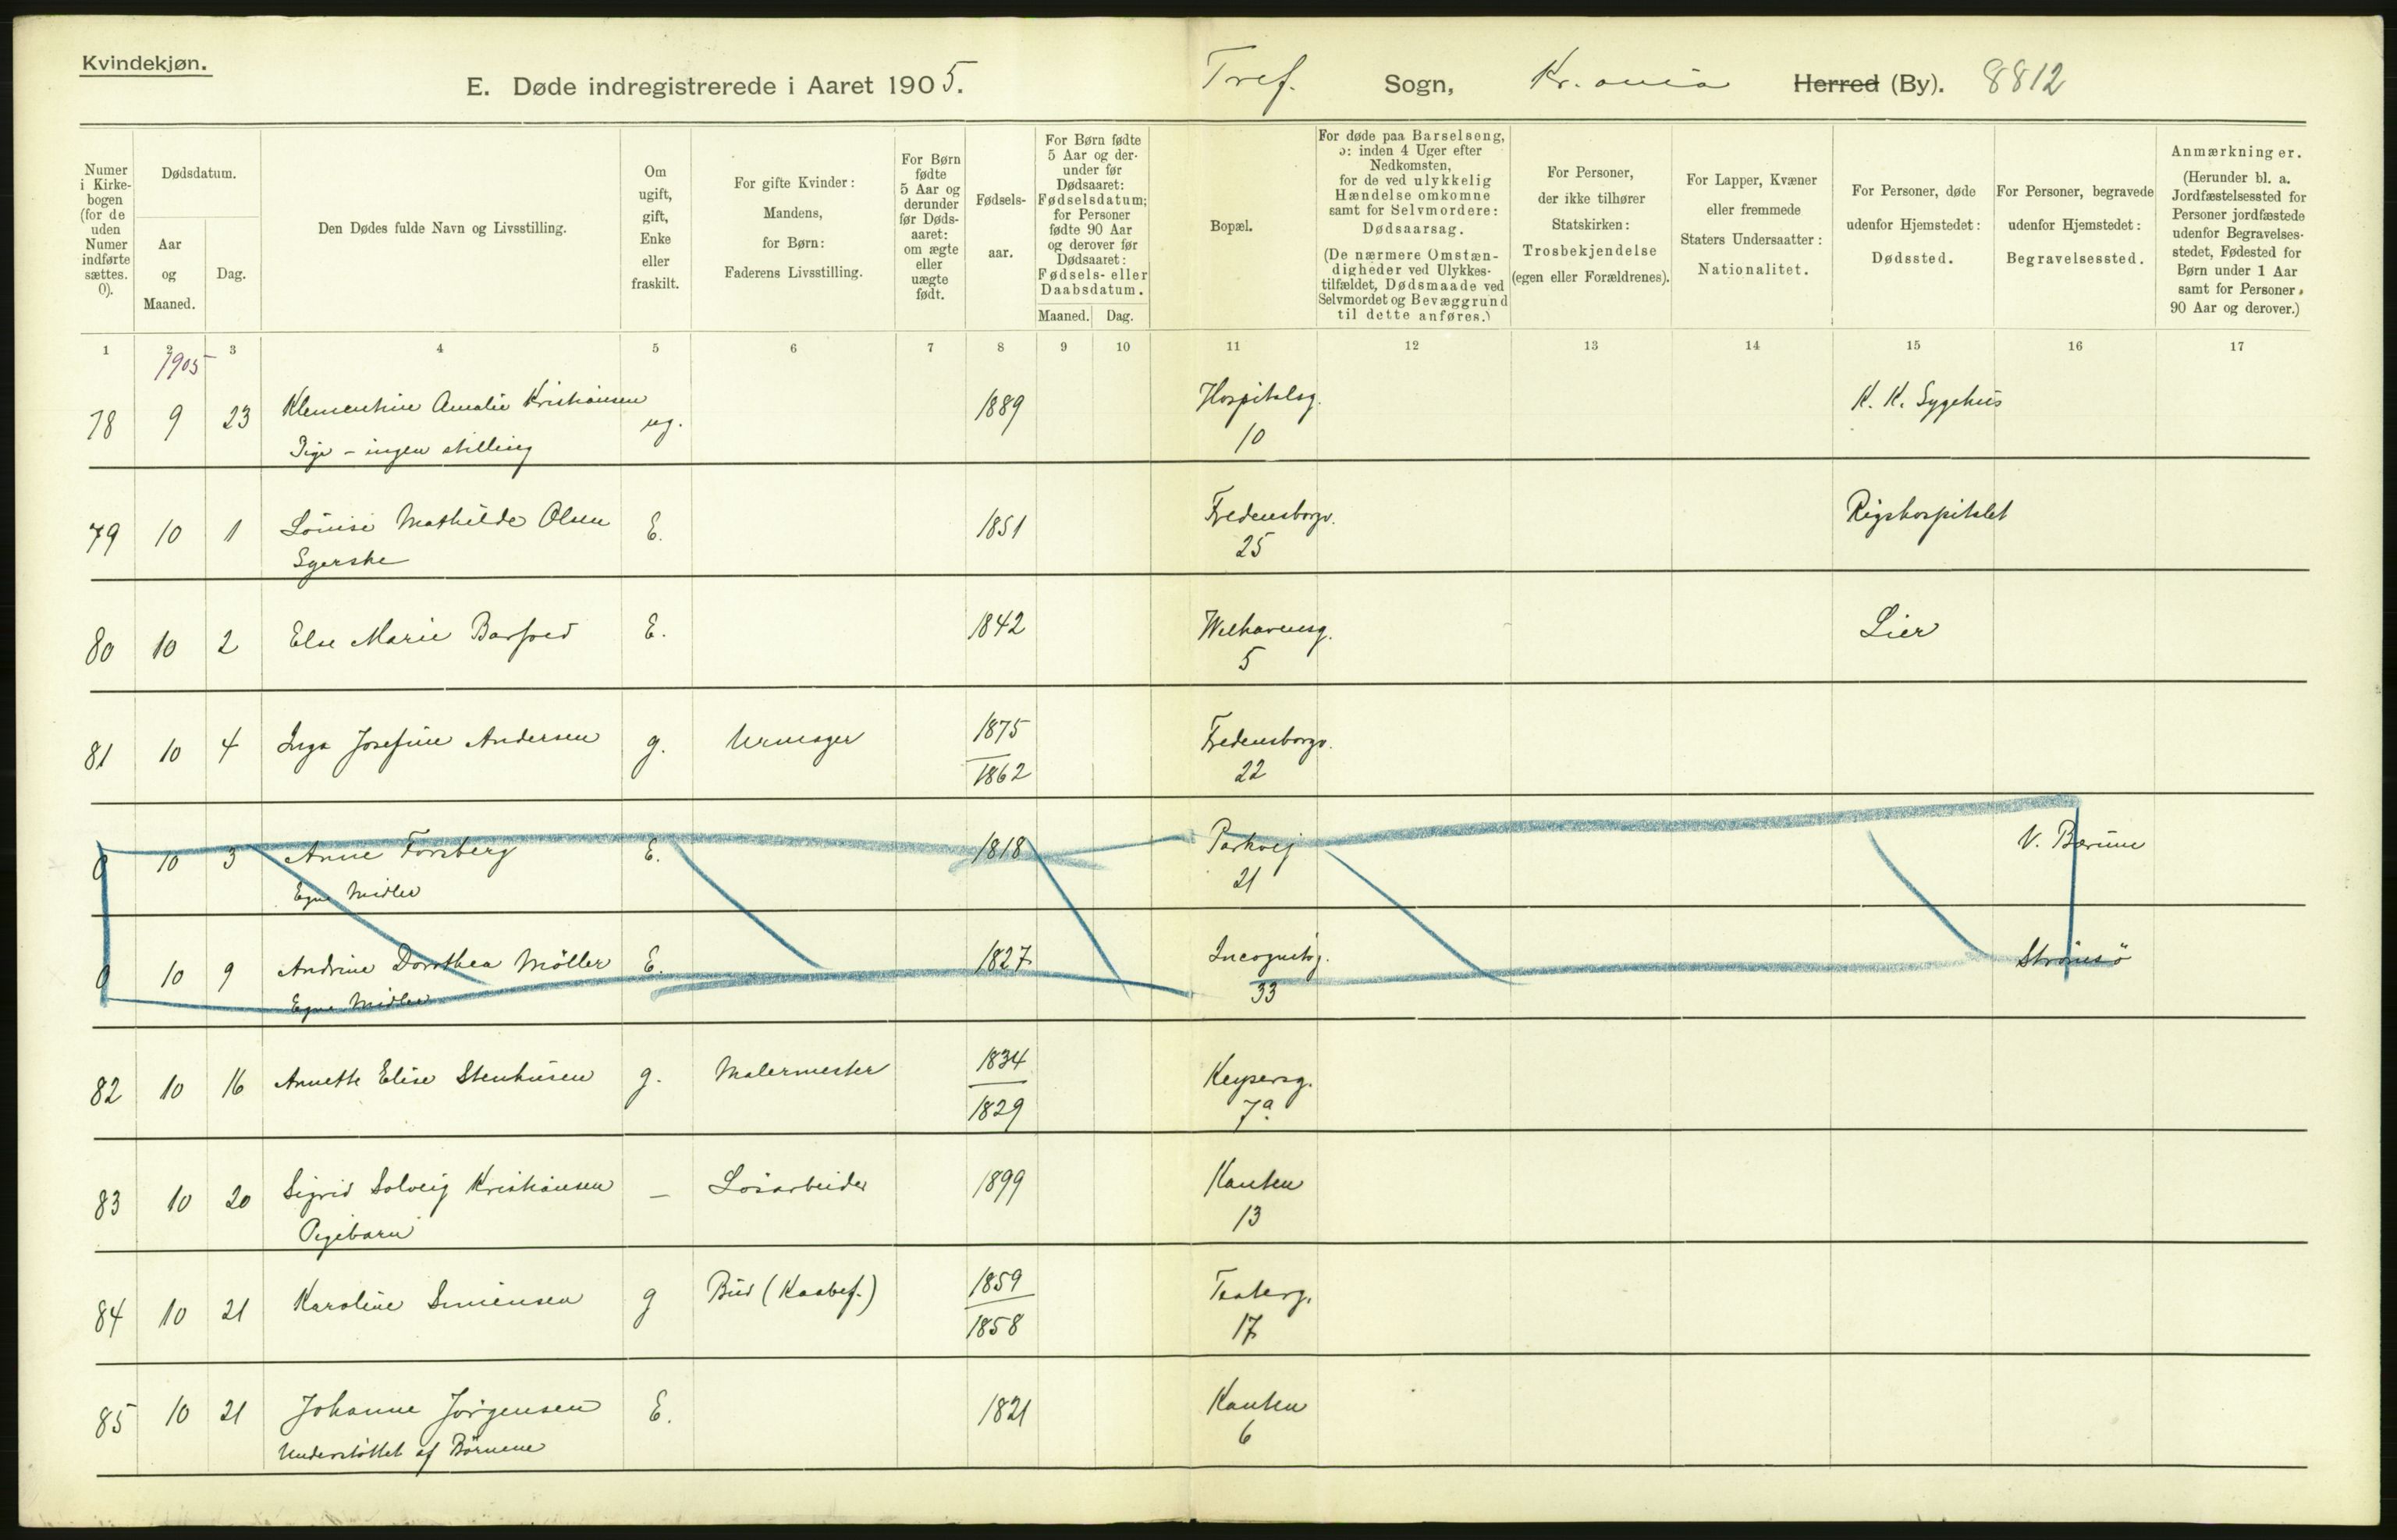 Kvindekjøn.
E. Døde indregistrerede i Aaret 1905. Tref. Sogn, Kr.ania Herred (By). 8812
Numer i Kirke-bogen (for de uden Numer indførte sættes. 0).
Dødsdatum.
Aar og Maaned.
Dag.
Den Dødes fulde Navn og Livsstilling.
Om ugift, gift, Enke eller fraskilt.
For gifte Kvinder: Mandens, for Børn: Faderens Livsstilling.
For Børn fødte 5 Aar og derunder før Døds-aaret: om ægte eller uægte født.
Fødsels-aar.
For Børn fødte 5 Aar og der-under før Dødsaaret: Fødselsdatum; for Personer fødte 90 Aar og derover før Dødsaaret: Fødsels- eller Daabsdatum.
Maaned. Dag.
Bopæl.
For døde paa Barselseng, ɔ: inden 4 Uger efter Nedkomsten, for de ved ulykkelig Hændelse omkomne samt for Selvmordere: Dødsaarsag.
(De nærmere Omstæn-digheder ved Ulykkes-tilfældet, Dødsmaade ved Selvmordet og Bevæggrund til dette anføres.)
For Personer, der ikke tilhører Statskirken: Trosbekjendelse (egen eller Forældrenes).
For Lapper, Kvæner eller fremmede Staters Undersaatter: Nationalitet.
For Personer, døde udenfor Hjemstedet: Dødssted.
For Personer, begravede udenfor Hjemstedet: Begravelsessted.
Anmærkninger. (Herunder bl. a. Jordfæstelsessted for Personer jordfæstede udenfor Begravelses-stedet, Fødested for Børn under 1 Aar samt for Personer 90 Aar og derover.)
1 2 3 4 5 6 7 8 9 10 11 12 13 14 15 16 17
1905
78 9 23 Klementine Amalie Kristiansen ug. 1889 Hospitalsg. K. K. Sygehus
Pige - ingen stilling 10
79 10 1 Louise Mathilde Olsen E. 1851 Fredensborgv. Rigshospitalet
Sygerske 25
80 10 2 Else Marie Barfoed E. 1842 Welhavensg. Lier
5
81 10 4 Inga Josefine Andersen g. Urmager 1875 Fredensborgv.
1862 22
0 10 3 Anne Forsberg E. 1818 Parkvej V. Bærum
Egne Midler 21
0 10 9 Andrine Dorothea Möller E. 1827 Incognitog. Strömsö
Egne Midler 33
82 10 16 Annette Elise Stenhusen g. Malermester 1834 Keysersg.
1829 7a
83 10 20 Sigrid Solveig Kristiansen — Løsarbeider 1899 Kanten
Pigebarn 13
84 10 21 Karoline Simensen g Bud (Kaabef.) 1859 Teaterg.
1858 17
85 10 21 Johanne Jörgensen E. 1821 Kanten
Understöttet af Börnene 6